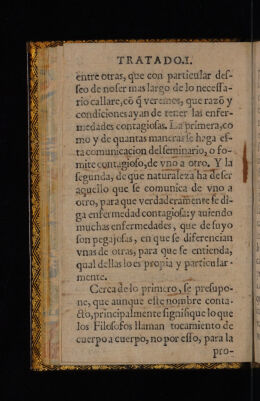 TRATADO.I.
entre otras, que con particular des-
seo de no ser mas largo de lo necessa-
rio callare, cõ q̃ veremos, que razõ y
condiciones ayan de tener las enfer-
medades contagiosas. La primera, co
mo y de quantas maneras se haga es-
ta comunicacion del seminario, o fo-
mite contagioso, de vno a otro. Y la
segunda, de que naturaleza ha de ser
aquello que se comunica de vno a
otro, para que verdaderamente se di-
ga enfermedad contagiosa: y auiendo
muchas enfermedades, que de suyo
son pegajosas, en que se diferencian
vnas de otras, para que se entienda,
qual dellas lo es propia y particular-
mente.
Cerca de lo primero, se presupo-
ne, que aunque este nombre conta-
cto, principalmente signifique lo que
los Filosofos llaman tocamiento de
cuerpo a cuerpo, no por esso, para la
pro-